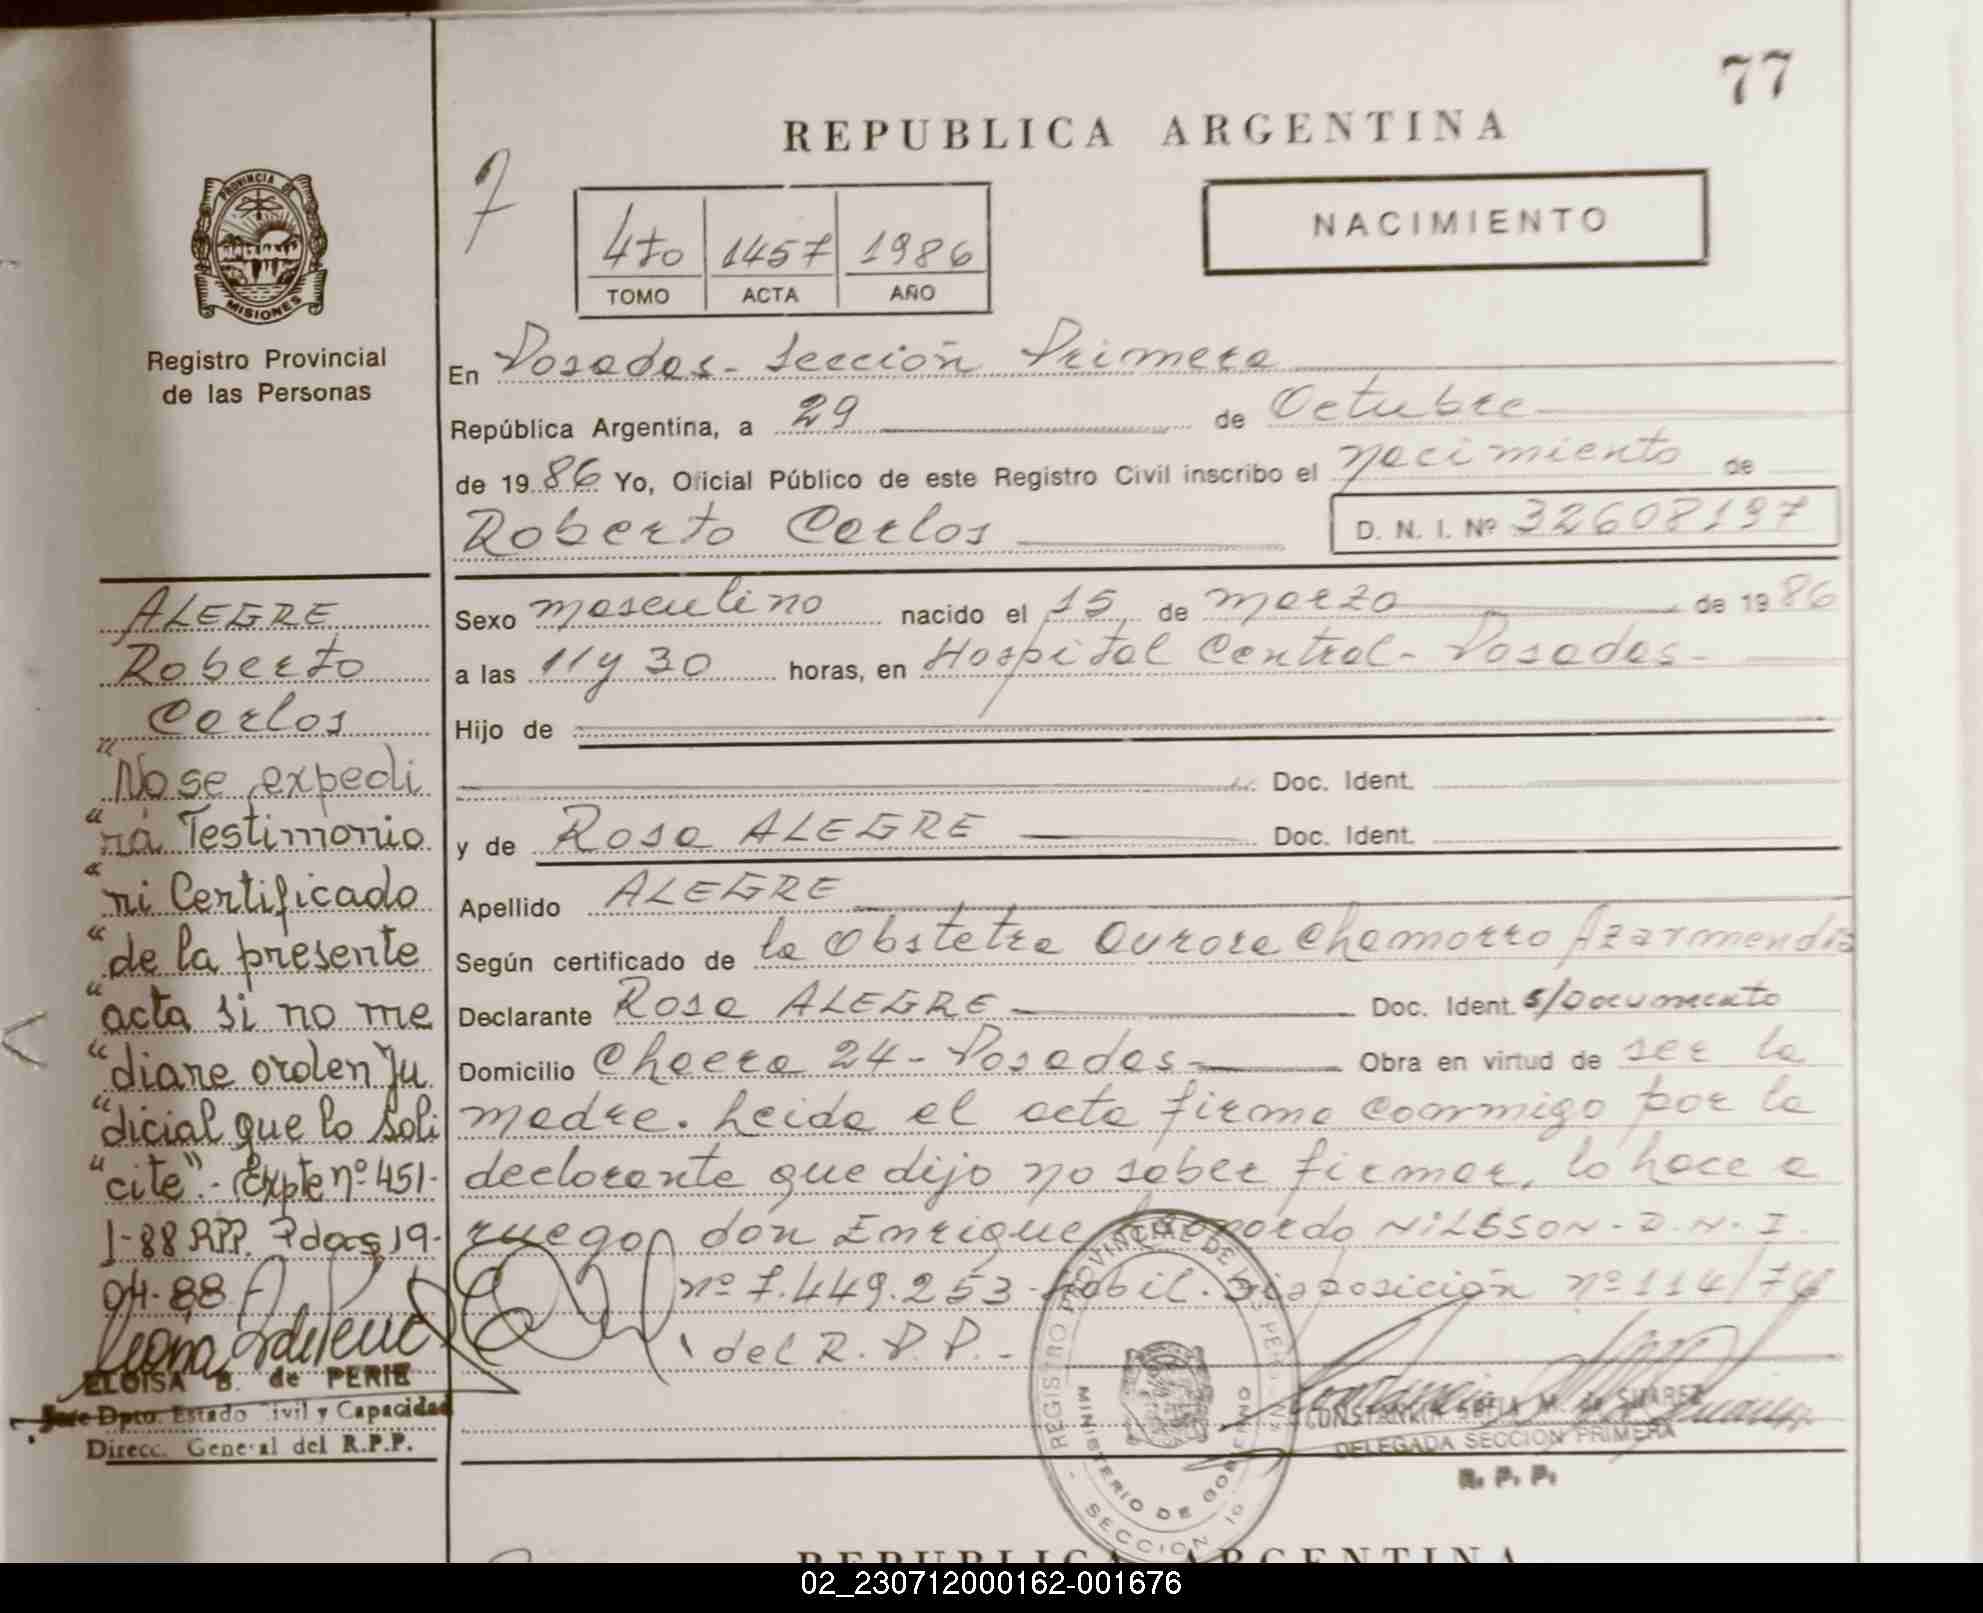 77
REPUBLICA ARGENTINA
7
NACIMIENTO
4to 1457 1986
TOMO ACTA AÑO
PROVINCIA DE MISIONES
Registro Provincial
de las Personas
En Posadas - Sección Primera
República Argentina, a 29 de Octubre
de 1986 Yo, Oficial Público de este Registro Civil inscribo el nacimiento de
Roberto Carlos D. N. I. Nº 32608197
Sexo masculino nacido el 15 de marzo de 1986
a las 11 y 30 horas, en Hospital Central - Posadas -
Hijo de
Doc. Ident.
y de Rosa ALEGRE Doc. Ident.
Apellido ALEGRE
Según certificado de la Obstetra Aurora Chamorro Azarmendia
Declarante Rosa ALEGRE Doc. Ident. s/Documento
Domicilio Chacra 24 - Posadas - Obra en virtud de ser la
madre. Leida el acta firma conmigo por la
declarante que dijo no saber firmar, lo hace a
ruego don Enrique Leonardo NILSSON - D. N. I.
nº 7.449.253 - habil. Disposición nº 114/74
del R. P. P. -
ALEGRE
Roberto
Carlos
"No se expedi
"rá Testimonio
"ni Certificado
"de la presente
"acta si no me
"diare orden Ju
"dicial que lo soli
"cite".- Expte nº 451-
J-88 RPP. Pdas 19-
04-88
ELOISA B. de PERIE
Jefe Dpto. Estado Civil y Capacidad
Direcc. General del R.P.P.
REGISTRO PROVINCIAL DE LAS PERSONAS
MINISTERIO DE GOBIERNO
SECCION 1º
CONSTANCIA SOFIA M. de SUAREZ
DELEGADA SECCION PRIMERA
R. P. P.
REPUBLICA ARGENTINA
02_230712000162-001676